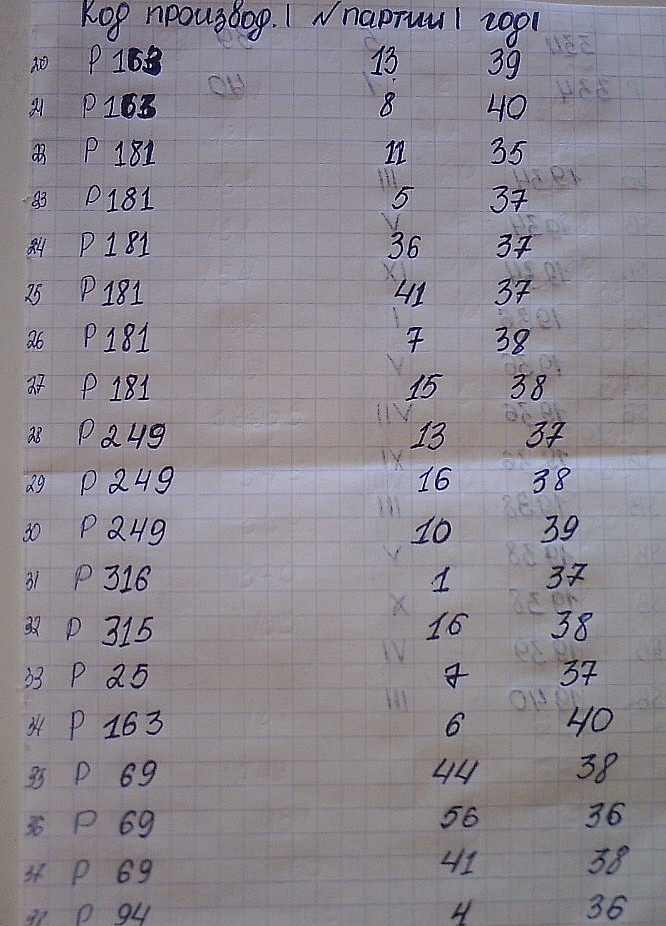 Код производ. | № партии | год |
20 Р 163 13 39
21 Р 163 8 40
22 Р 181 11 35
23 Р 181 5 37
24 Р 181 36 37
25 Р 181 41 37
26 Р 181 7 38
27 Р 181 15 38
28 Р 249 13 37
29 Р 249 16 38
30 Р 249 10 39
31 Р 316 1 37
32 Р 315 16 38
33 Р 25 7 37
34 Р 163 6 40
35 Р 69 44 38
36 Р 69 56 36
37 Р 69 41 38
38 Р 94 4 36